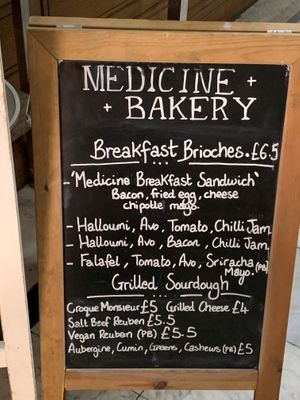 MEDICINE +
+ BAKERY
Breakfast Brioches. £6.5
- 'Medicine Breakfast Sandwich'
Bacon, fried egg, cheese
chipotle mayo.
- Hallouni, Avo, Tomato, Chilli Jam.
- Hallouni, Avo, Bacon, Chilli Jam.
- Falafel, Tomato, Avo, Sriracha (PB)
Mayo.
Grilled Sourdough
Croque Monsieur £5 Grilled Cheese £4
Salt Beef Reuben £5.5
Vegan Reuben (PB) £5.5
Aubergine, Cumin, Greens, Cashews (PB) £5